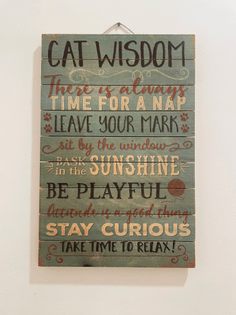 CAT WISDOM
There is always
TIME FOR A NAP
LEAVE YOUR MARK
sit by the window
BASK in the SUNSHINE
BE PLAYFUL
Attitude is a good thing
STAY CURIOUS
TAKE TIME TO RELAX!